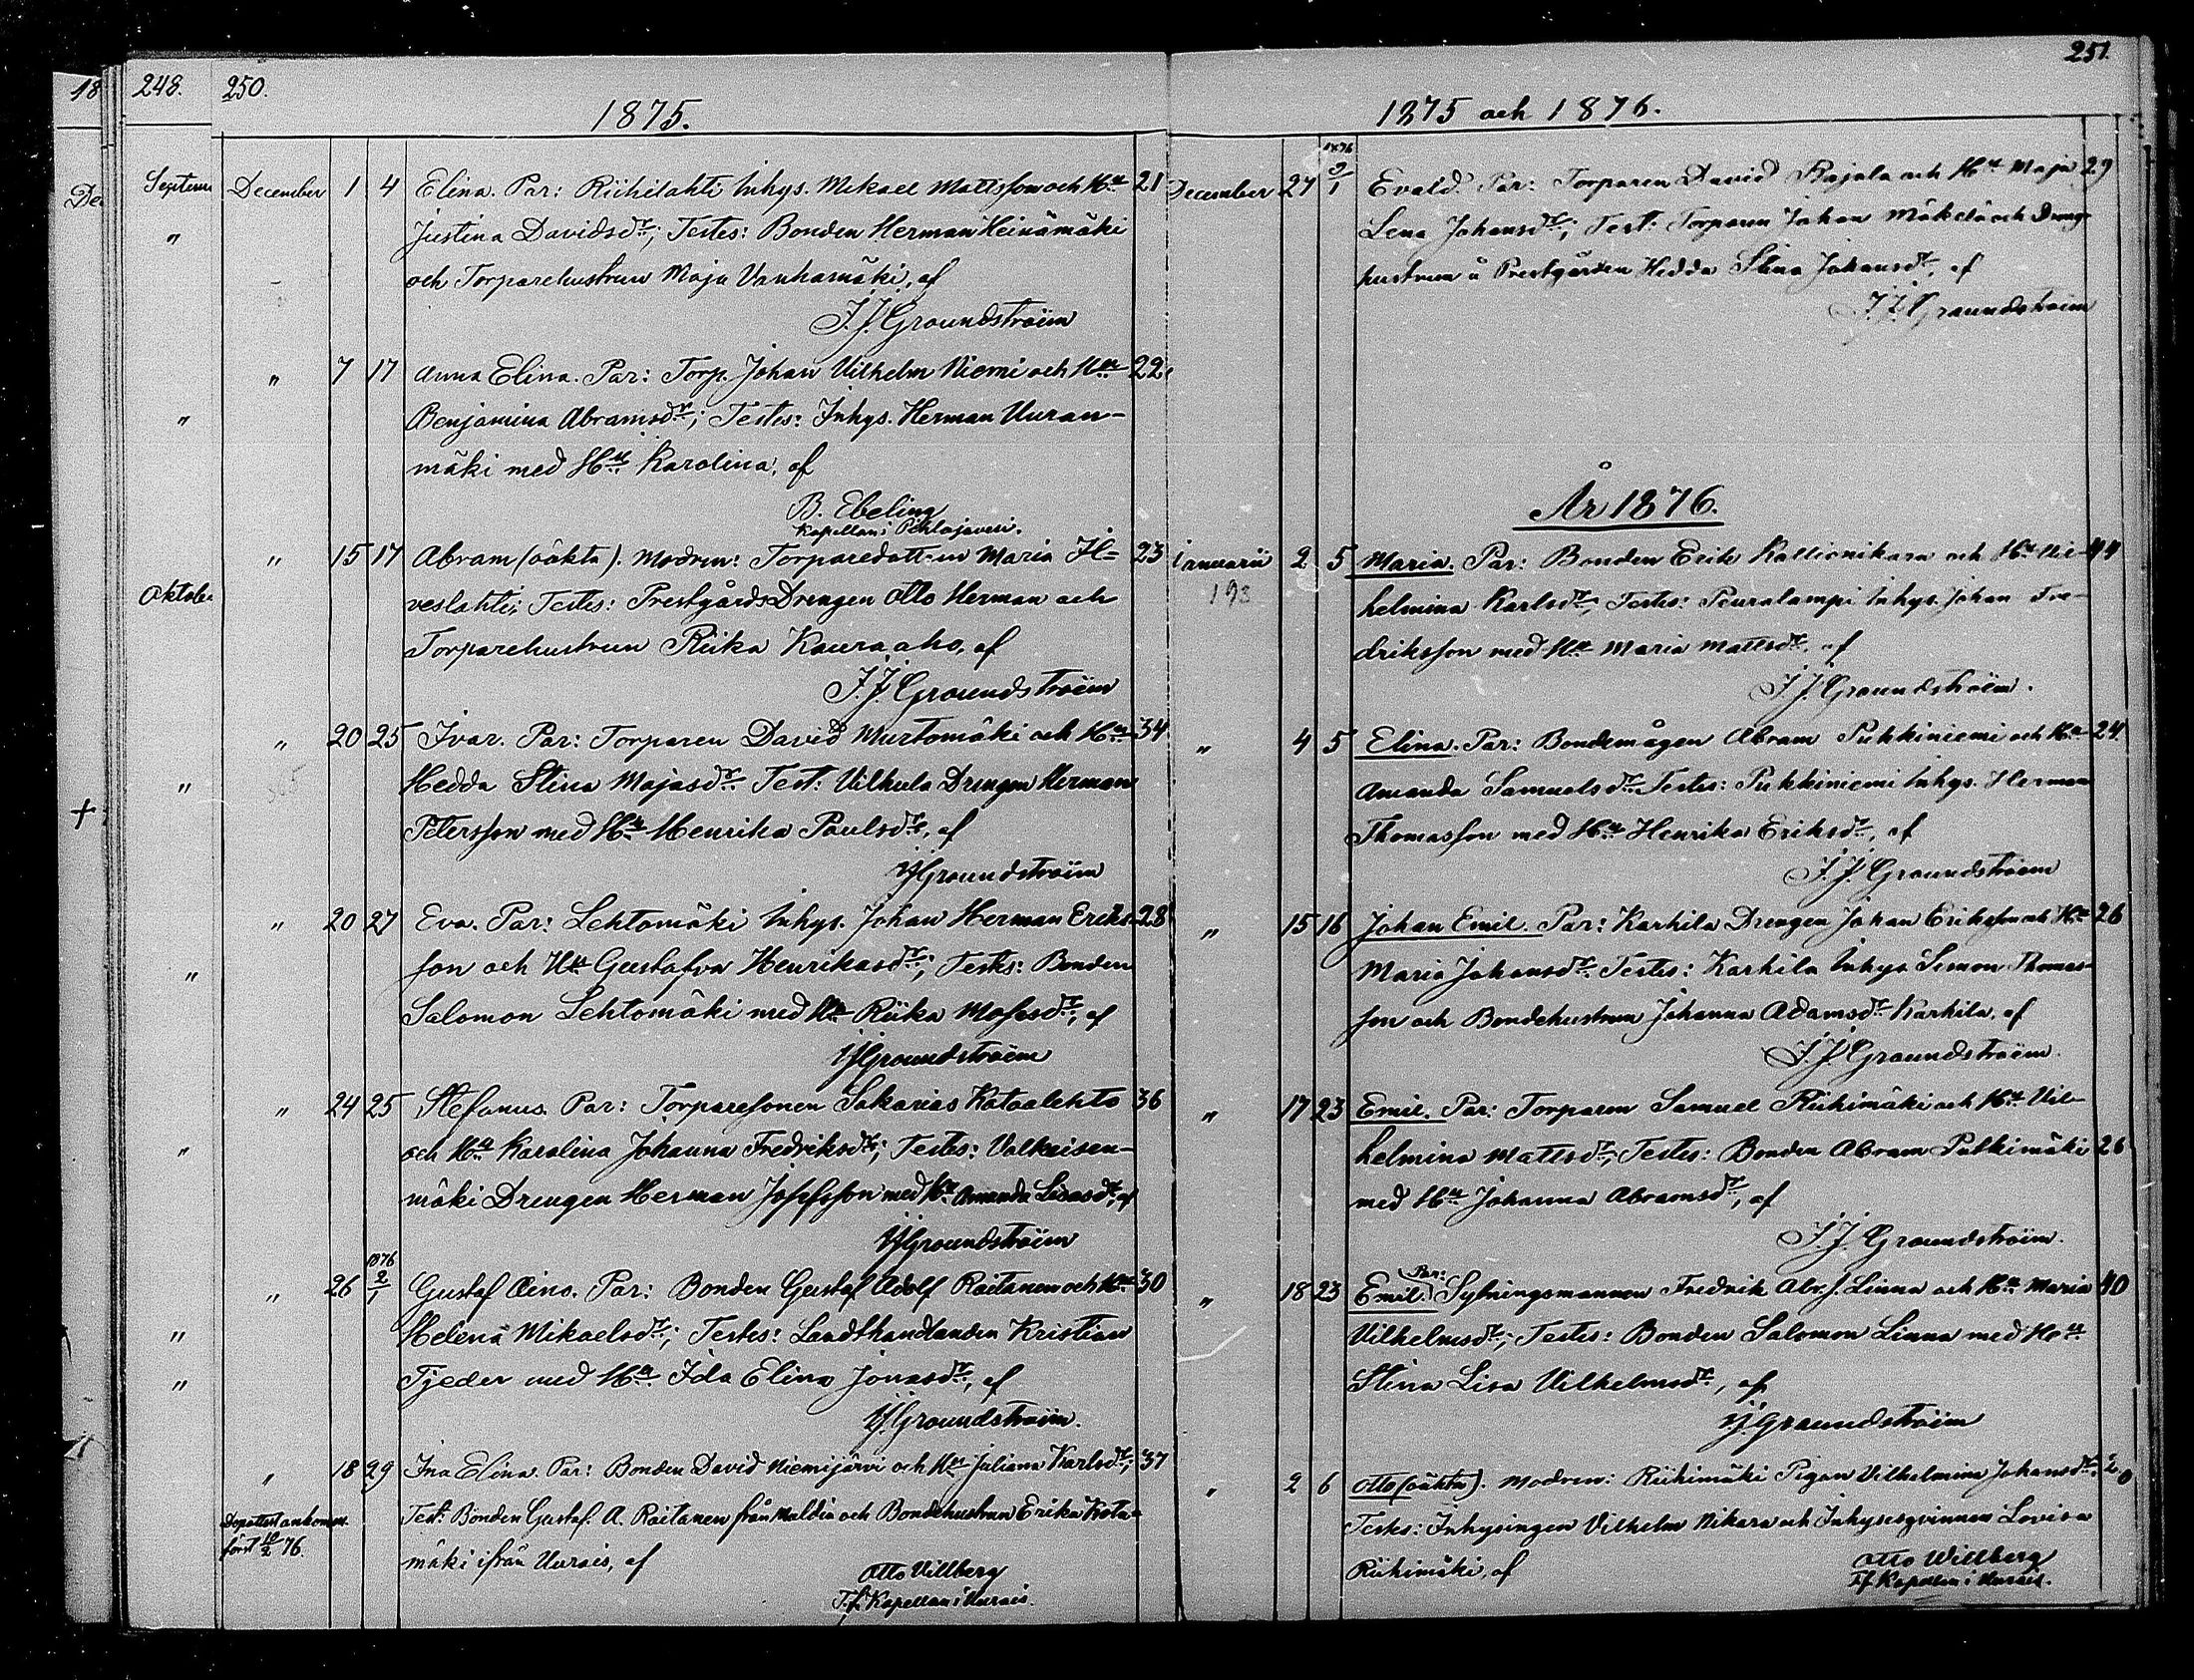 18
248.
250.
1875.
Septem
December 1 4 Elina. Par: Riihilahti Inhys. Mikael Mattsson och Hu 21
Justina Davidsdr; Testes: Bonden Herman Heinämäki
och Torparehustrun Maja Vanhamäki, af
J.J. Groundstroëm
" 7 17 Anna Elina. Par: Torp. Johan Vilhelm Niemi och Hu 22
Benjamina Abramsdr; Testes: Inhys. Herman Uuran-
mäki med Hu Karolina, af
B. Ebeling
Kapellan i Pihlajavesi.
Oktober
" 15 17 Abram (oäkta). Modren: Torparedottren Maria Hi- 23
veslahti; Testes: PrestgårdsDrengen Otto Herman och
Torparehustrun Riika Kauraaho, af
J.J. Groundstroëm
" 20 25 Ivar. Par: Torparen David Murtomäki och Hu 34
Hedda Stina Majasdr. Test: Vilkula Drengen Herman
Petersson med Hu Henrika Paulsdr, af
JJGroundstroëm
" 20 27 Eva. Par: Lehtomäki Inhys. Johan Herman Eriks- 28
son och Hu Gustafva Henrikasdr; Testes: Bonden
Salomon Lehtomäki med Hu Riika Mosesdr, af
JJGroundstroëm
" 24 25 Stefanus. Par: Torparesonen Sakarias Kataalehto 36
och Hu Karolina Johanna Fredriksdr; Testes: Valkeisen-
mäki Drengen Herman Josefsson med Hu Amanda Lisasdr, af
JJGroundstroëm
" 26 1876 2/1 Gustaf Aino. Par: Bonden Gustaf Adolf Raitanen och Hu 30
Helena Mikaelsdr; Testes: Landthandlanden Kristian
Tjeder med Hu Ida Elina Jonasdr, af
JJ.Groundstroëm.
" 18 29 Ina Elina. Par: Bonden David Niemijärvi och Hu Juliana Karlsdr; 37
Dopattest ankommen
först 10/2 76.
Test: Bonden Gustaf A. Raitanen från Maldia och Bondehustrun Erika Kota-
mäki ifrån Uurais, af
Otto Villberg
T.f. Kapellan i Uurais.
251.
1875 och 1876.
December 27 1876 9/1 Evald. Par: Torparen David Rajala och Hu Maja 29
Lena Johansdr; Test: Torparen Johan Mäkelä och Dreng-
hustrun å Prestgården Hedda Stina Johansdr, af
J.J. Groundstroëm
År 1876.
Januarii 2 5 Maria. Par: Bonden Erik Kallionikara och Hu Vil- 44
193
helmina Karlsdr; Testes: Peuralampi Inhys. Johan Fre-
driksson med Hu Maria Mattsdr, af
J.J. Groundstroëm.
" 4 5 Elina. Par: Bondemågen Abram Pukkiniemi och Hu 24
Amanda Samuelsdr. Testes: Pukkiniemi Inhys. Herman
Thomasson med Hu Henrika Eriksdr, af
J.J. Groundstroëm
" 15 16 Johan Emil. Par: Karhila Drengen Johan Eriksson och Hu 26
Maria Johansdr. Testes: Karhila Inhys Simon Thomas-
son och Bondehustrun Johanna Adamsdr Karhila, af
J.J. Groundstroëm.
" 17 23 Emil. Par: Torparen Samuel Riihimäki och Hu Vil-
helmina Mattsdr; Testes: Bonden Abram Putkimäki 26
med Hu Johanna Abramsdr, af
J.J. Groundstroëm.
" 18 23 Emil. Par: Sytningsmannen Fredrik Abr.s. Linna och Hu Maria 40
Vilhelmsdr; Testes: Bonden Salomon Linna med Hu
Stina Lisa Vilhelmsdr, af
JJ.Groundstroëm
" 2 6 Otto (oäkta). Modren: Riihimäki Pigan Vilhelmina Johansdr. 20
Testes: Inhysingen Vilhelm Nikara och Inhysesqvinnan Lovisa
Riihimäki, af
Otto Willberg
T.f. Kapellan i Uurais.